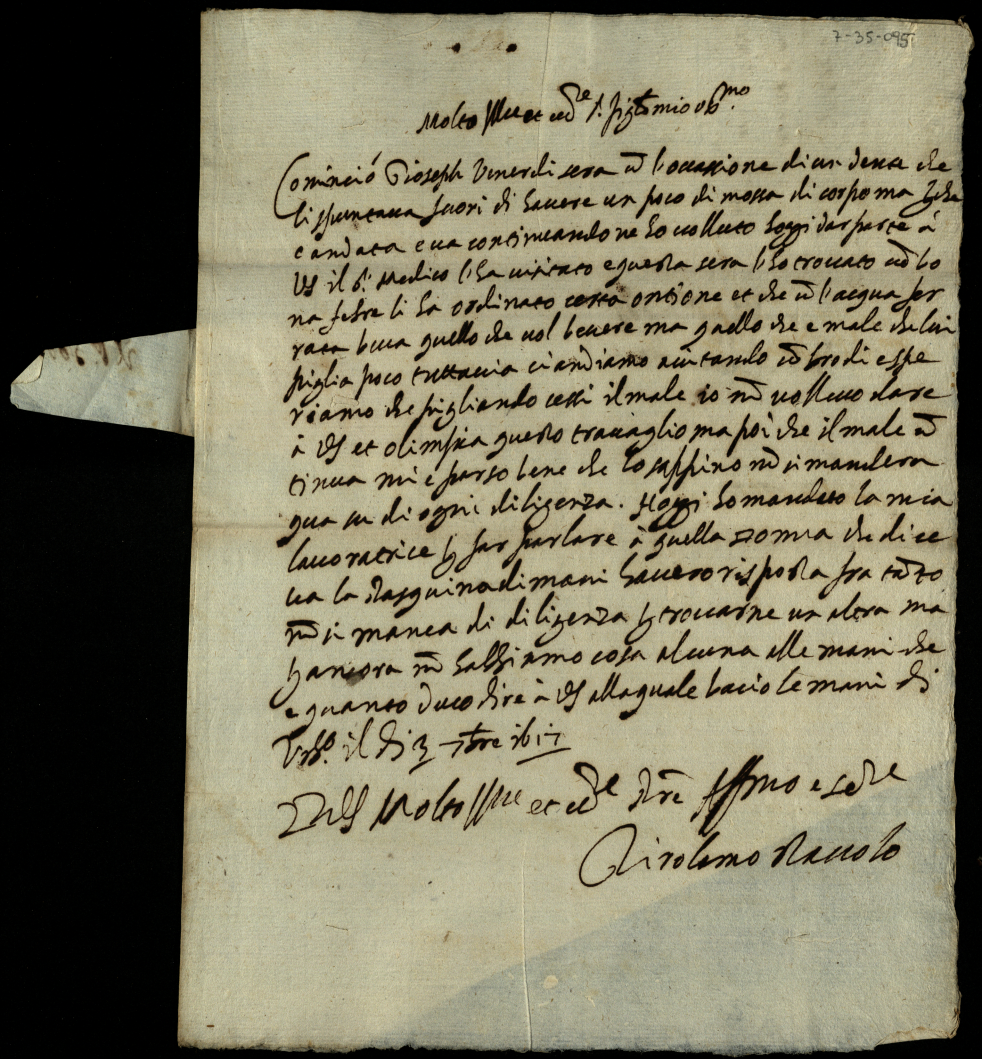 7-35-095
Molto Ill.re et ecc.e S.r fig.lo mio oss.mo
Cominciò Gioseph Venerdi sera cō l'occasione di un dente che
li spuntava fuori di havere un poco di mossa di corpo ma perche
e andata e va continuandone ho volluto hoggi dar parte à
VS il S.r Medico l'ha visitato e questa sera l'ho trovato cō bo
na febre li ha ordinato certa ontione et che cō l'acqua fer
rata beva quello che vol bevere ma quello che e male che lui
piglia poco tuttavia ci andiamo aiutando cō brodi e spe
riamo che pigliando cessi il male io nō vollevo dare
à VS et olimpia questo travaglio ma poi che il male cō
tinua mi e parso bene che lo sappino nō si manchera
qua su di ogni diligenza. Hoggi ho mandato la mia
lavoratrice per far parlare à quella donna che dice
va la Pasquina dimani havero risposta fra tāto
nō si manca di diligenza per trovarne un altra ma
per ancora nō habbiamo cosa alcuna alle mani che
e quanto devo dire à VS alla quale bacio le mani di
Urb.o il di 3 7bre 1617
Di VS Molto Ill.re et ecc.e
Girolamo